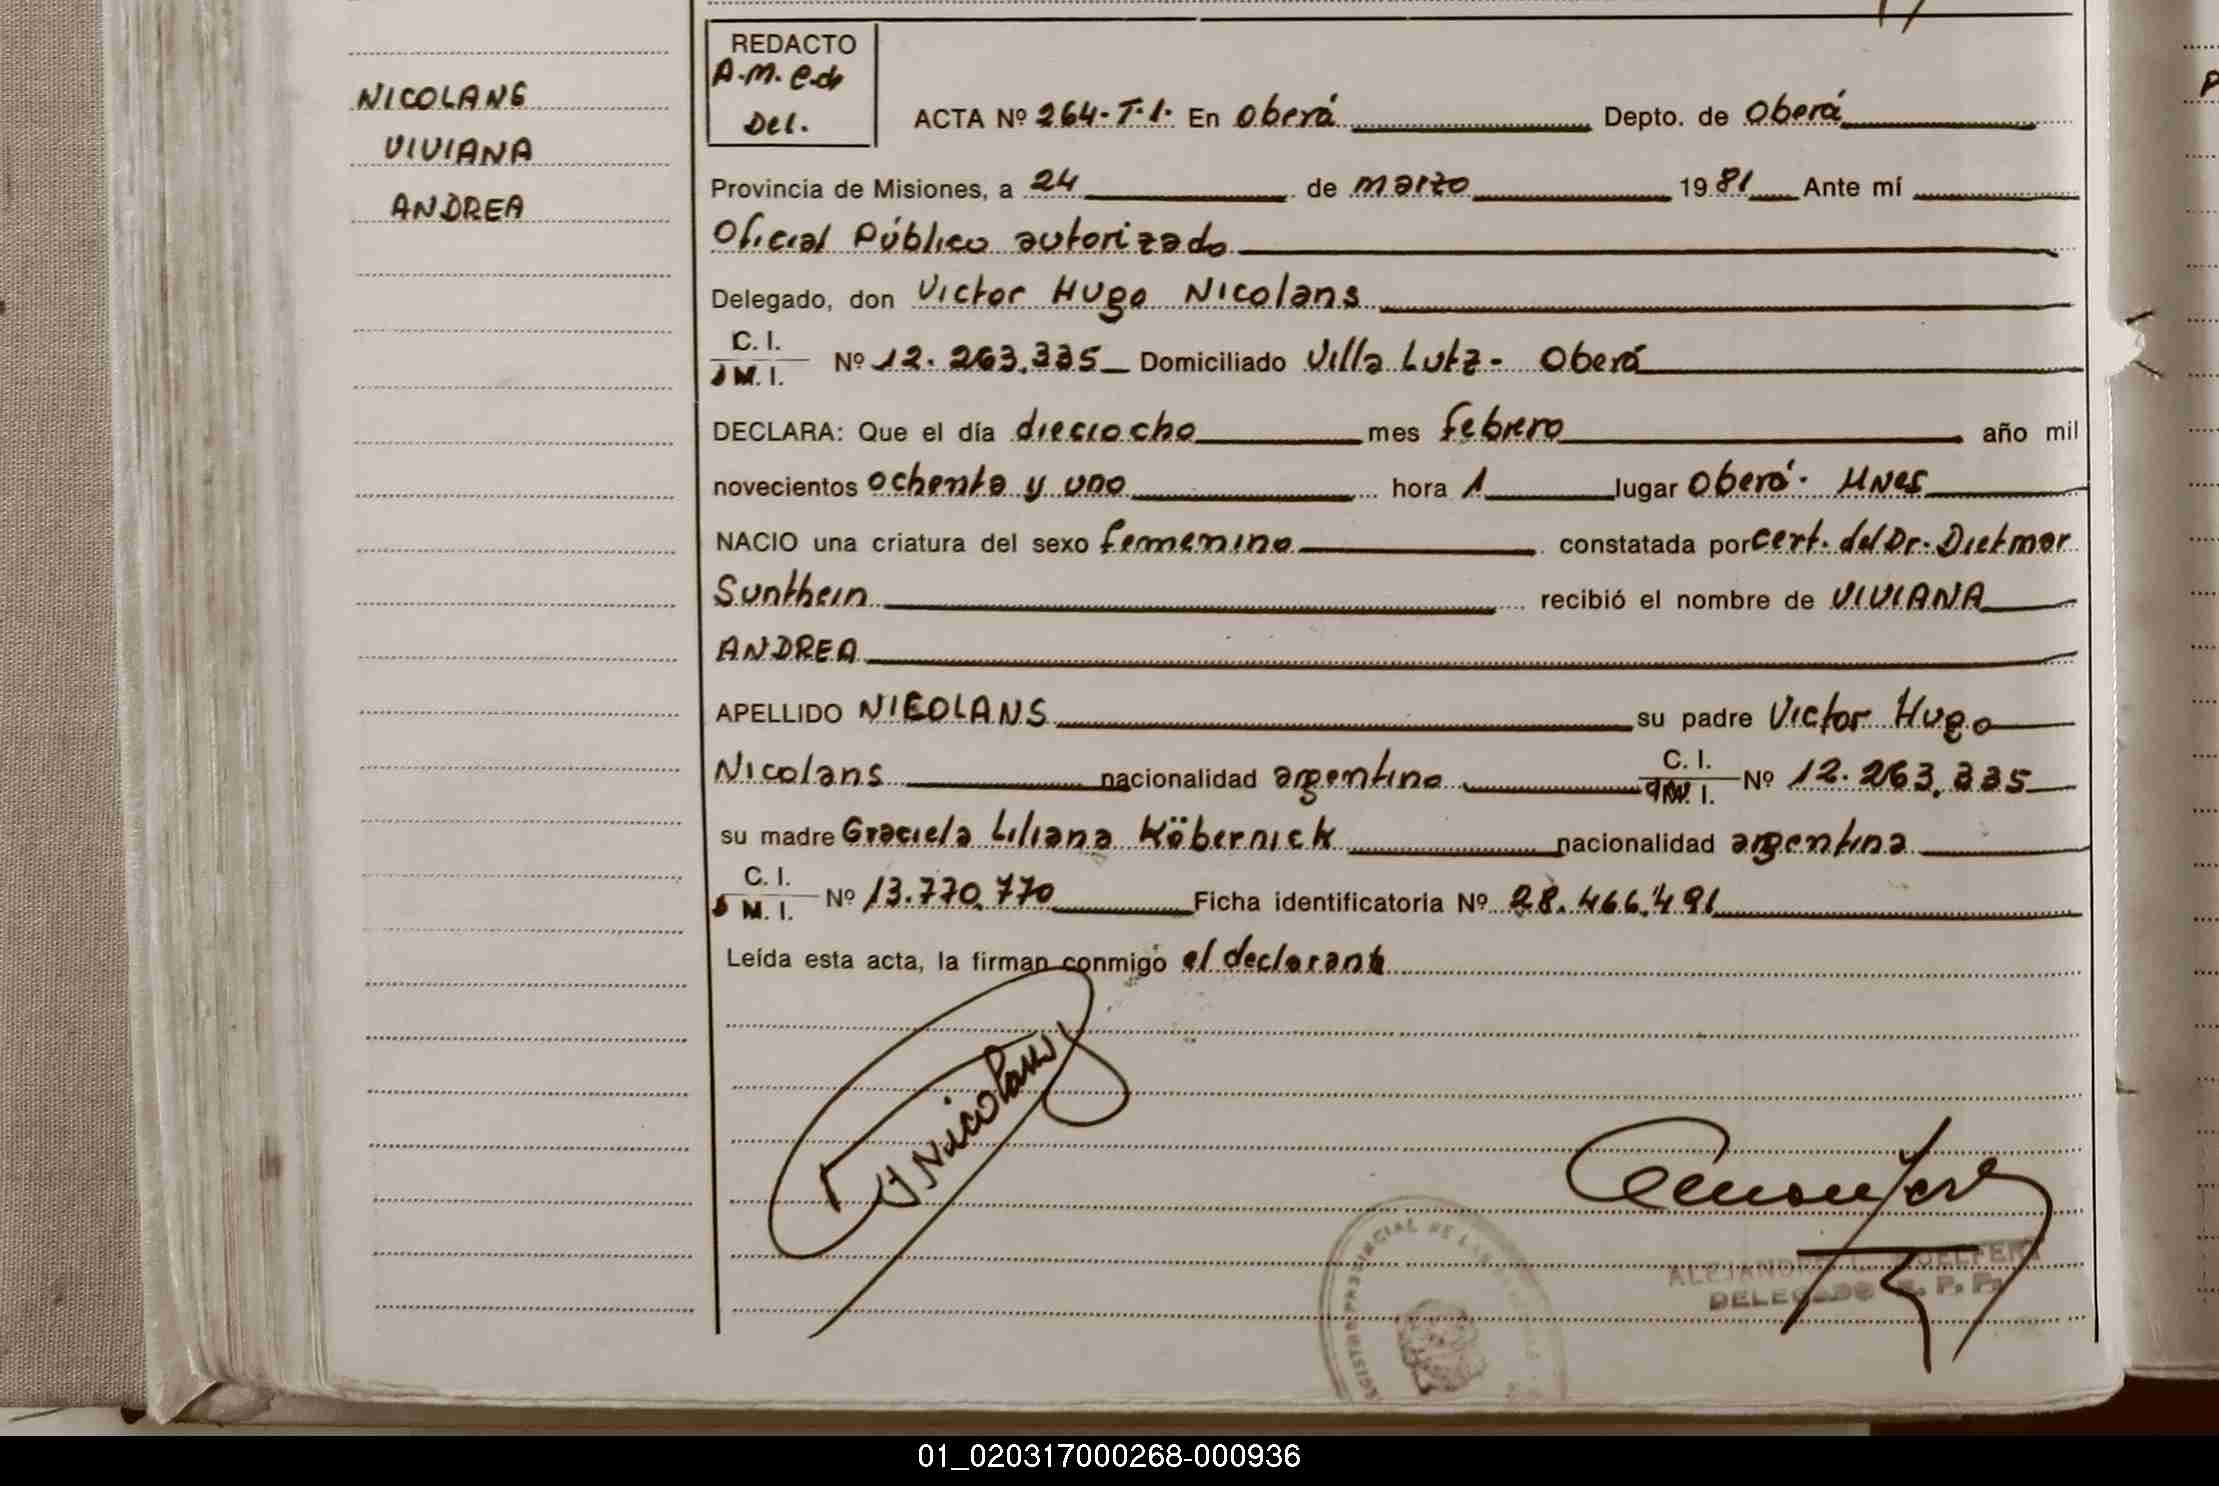 NICOLANS
VIVIANA
ANDREA
REDACTO
A.M. C.de
Del.
ACTA Nº 264-T.1. En Oberá Depto. de Oberá
Provincia de Misiones, a 24 de marzo 1981 Ante mí
Oficial Público autorizado
Delegado, don Victor Hugo Nicolans
C. I.
M. I. Nº 12.263.335 Domiciliado Villa Lutz - Oberá
DECLARA: Que el día dieciocho mes febrero año mil
novecientos ochenta y uno hora 1 lugar Oberá. Mnes
NACIO una criatura del sexo femenino constatada por cert. del Dr. Dietmar
Sunthein recibió el nombre de VIVIANA
ANDREA
APELLIDO NICOLANS su padre Victor Hugo
Nicolans nacionalidad argentino C. I. M. I. Nº 12.263.335
su madre Graciela Liliana Köbernick nacionalidad argentina
C. I.
M. I. Nº 13.770.770 Ficha identificatoria Nº 28.466.491
Leída esta acta, la firman conmigo el declarante
Nicolans
ALEJANDR
DELEGADO
01_020317000268-000936